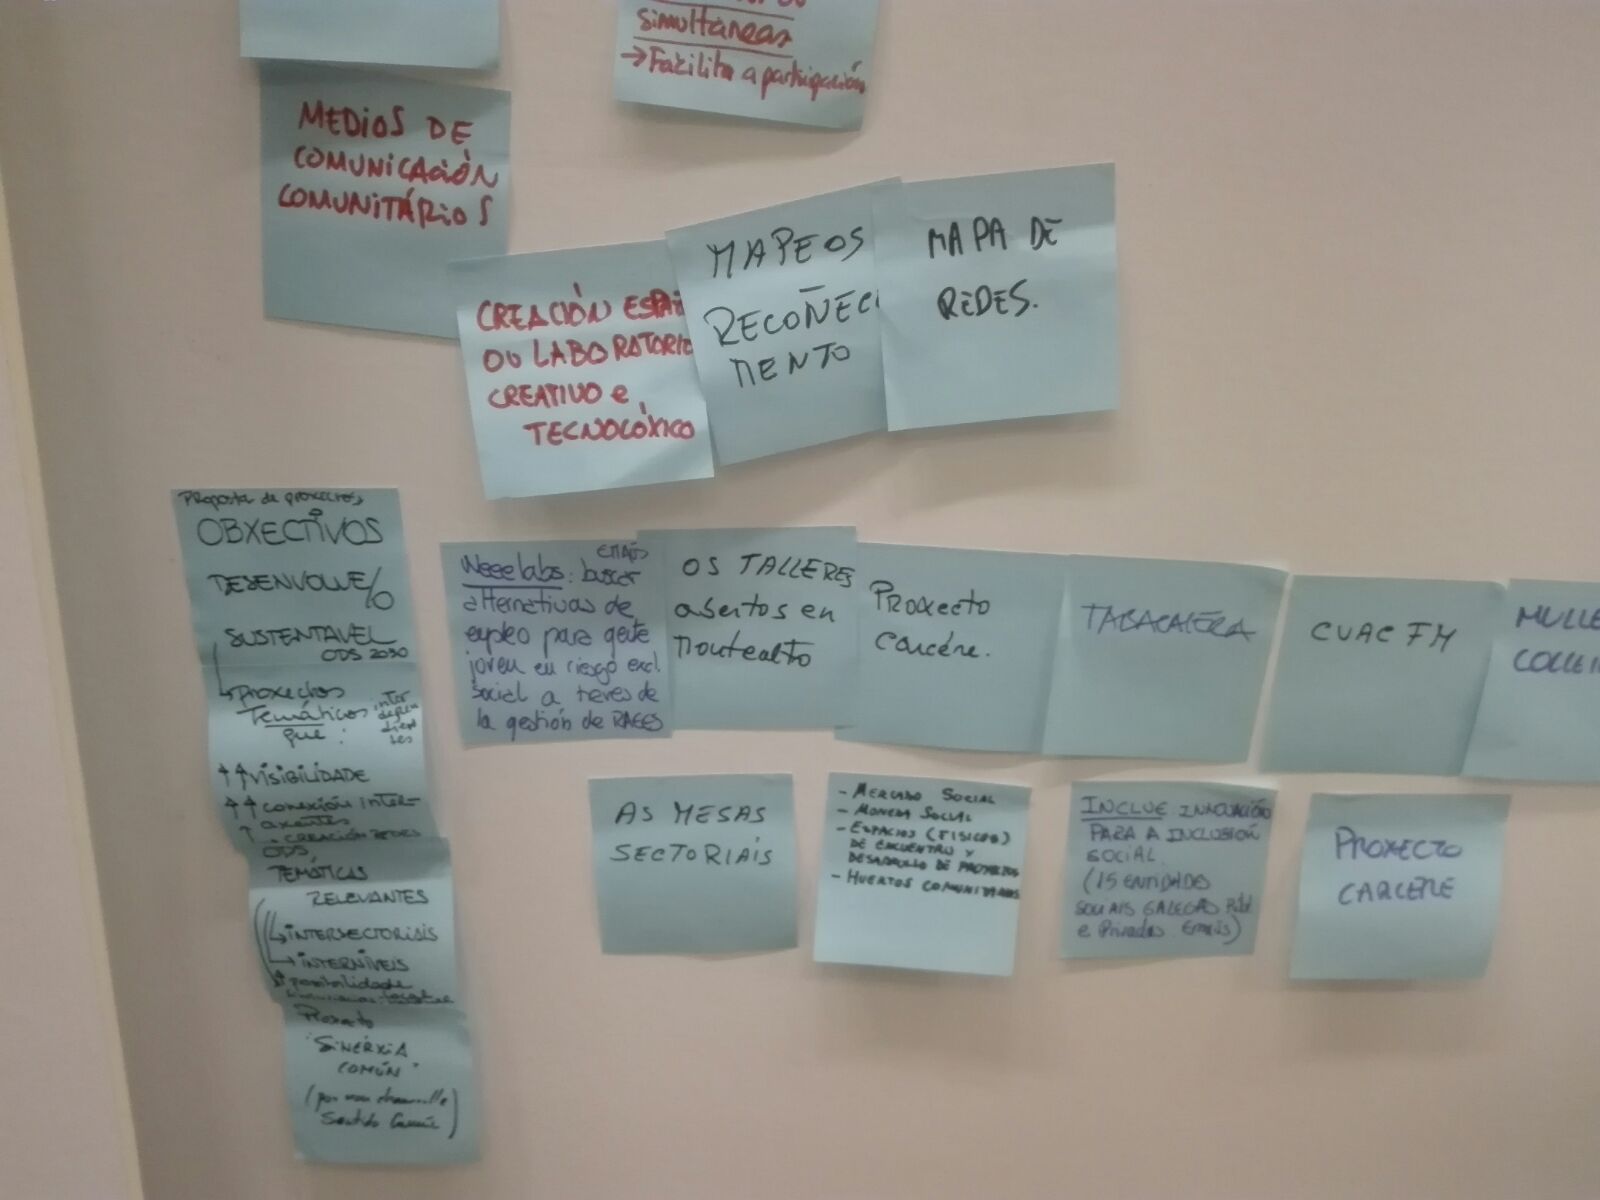 simultáneas
→ Facilita a participación
MEDIOS DE
COMUNICACIÓN
COMUNITÁRIOS
CREACIÓN
OU LABORATORIO
CREATIVO e
TECNOLÓXICO
MAPEOS
RECOÑECI
MENTO
MAPA DE
REDES.
Proposta de proxectos
OBXECTIVOS
DESENVOLVE/O
SUSTENTAVEL
ODS 2030
proxectos
Temáticos
que:
inter
depen
dien
tes
↑↑ VISIBILIDADE
↑↑ conexión inter-
axentes
↑ CREACIÓN REDES
ODS
TEMÁTICAS
RELEVANTES
INTERSECTORIAIS
INTERNÍVEIS
posibilidade
Proxecto
"SINERXIA
COMÚN"
Sentido Común)
EMAÚS
Weeelabs: buscar
alternativas de
empleo para gente
joven en riesgo excl.
social a traves de
la gestión de RAEES
OS TALLERES
abertos en
Monteralto
Proxecto
Carcére.
TABACALERA
CUAC FM
MULLE
AS MESAS
SECTORIAIS
- MERCADO SOCIAL
- MONEDA SOCIAL
- ESPACIOS (FISICOS)
DE ENCUENTRO Y
DESARROLLO DE PROYECTOS
- HUERTOS COMUNITARIOS
INCLUE INNOVACIÓN
PARA A INCLUSIÓN
SOCIAL.
(15 ENTIDADES
SOCIAIS GALEGAS Púb
e Privadas. Emaús)
PROXECTO
CARCERE